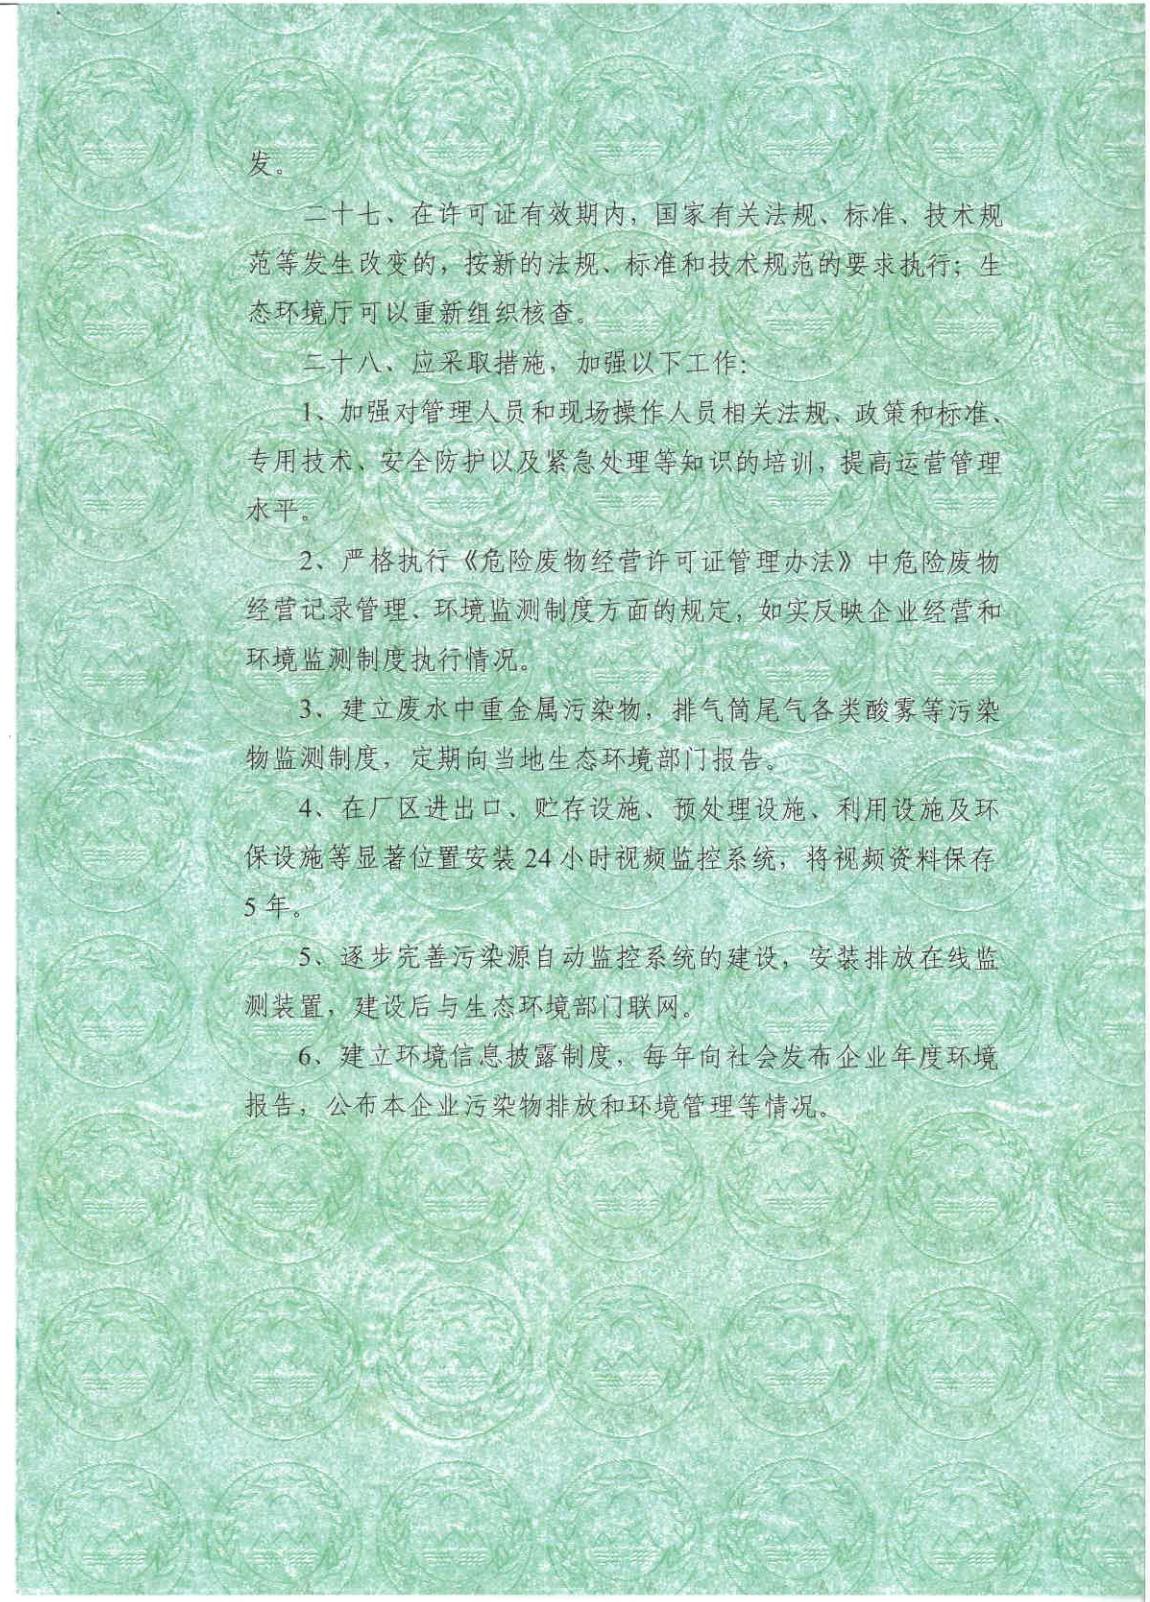 发。
二十七、在许可证有效期内，国家有关法规、标准、技术规
范等发生改变的，按新的法规、标准和技术规范的要求执行；生
态环境厅可以重新组织核查。
二十八、应采取措施，加强以下工作：
1、加强对管理人员和现场操作人员相关法规、政策和标准、
专用技术、安全防护以及紧急处理等知识的培训，提高运营管理
水平。
2、严格执行《危险废物经营许可证管理办法》中危险废物
经营记录管理、环境监测制度方面的规定，如实反映企业经营和
环境监测制度执行情况。
3、建立废水中重金属污染物，排气筒尾气各类酸雾等污染
物监测制度，定期向当地生态环境部门报告。
4、在厂区进出口、贮存设施、预处理设施、利用设施及环
保设施等显著位置安装 24 小时视频监控系统，将视频资料保存
5 年。
5、逐步完善污染源自动监控系统的建设，安装排放在线监
测装置，建设后与生态环境部门联网。
6、建立环境信息披露制度，每年向社会发布企业年度环境
报告，公布本企业污染物排放和环境管理等情况。